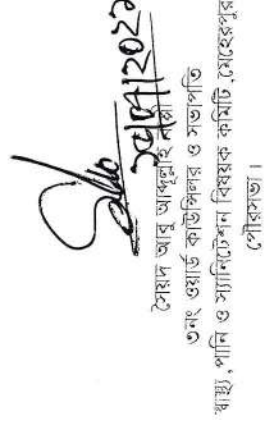 ১৮/০৮/২০২১
সৈয়দ আবু আব্দুল্লাহ
৩নং ওয়ার্ড কাউন্সিলর ও সভাপতি
স্বাস্থ্য, পানি ও স্যানিটেশন বিষয়ক কমিটি, মেহেরপুর
পৌরসভা।